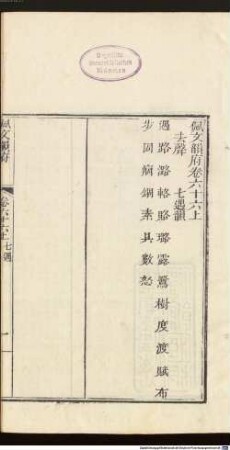 佩文韻府卷六十六上
去聲
七遇韻
遇路潞輅賂璐露鷺樹度渡賦布
步固痼錮素具數怒
佩文韻府
卷六十六上 七遇
一